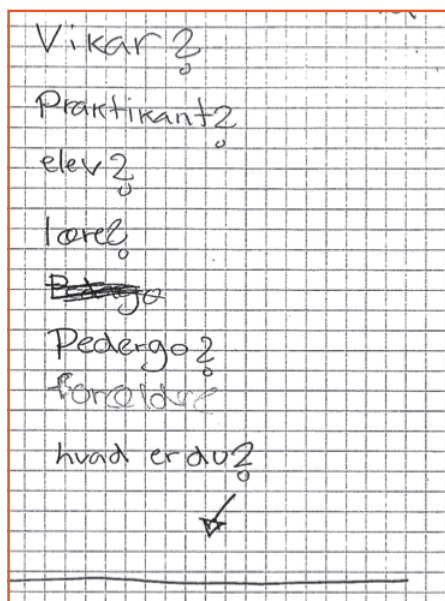 Vikar?
Praktikant?
elev?
lære?
Pedergo?
forældre
hvad er du?